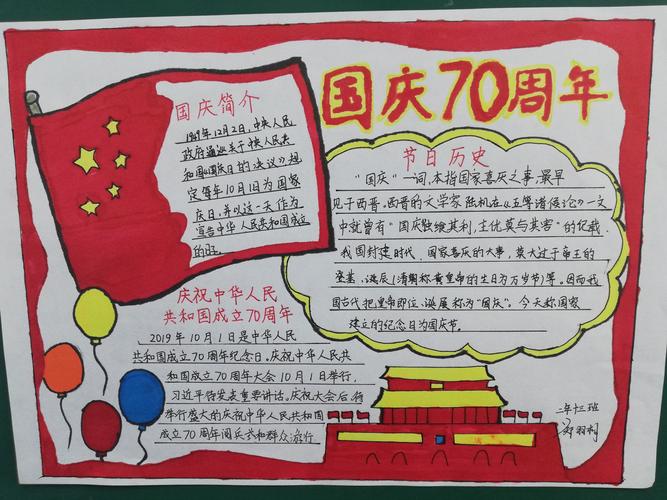 国庆70周年
国庆简介
1949年12月2日,中央人民
政府通过关于中央人民共
和国《国庆日的决议》规
定每年10月1日为国家
庆日,并以这一天作为
宣告中华人民共和国成立
的日。
节日历史
“国庆”一词,本指国家喜庆之事,最早
见于西晋。西晋的文学家陆机在《五等诸侯论》一文
中就曾有“国庆独飨其利,主忧莫与其害”的记载
我国封建时代、国家喜庆的大事,莫大过于帝王的
登基、诞辰(清朝称皇帝的生日为万岁节)等。因而我
国古代把皇帝即位、诞辰称为“国庆”。今天称国家
建立的纪念日为国庆节。
庆祝中华人民
共和国成立70周年
2019年10月1日是中华人民
共和国成立70周年纪念日。庆祝中华人民共
和国成立70周年大会10月1日举行,
习近平将发表重要讲话。庆祝大会后,将
举行盛大的庆祝中华人民共和国
成立70周年阅兵式和群众游行
二年十二班